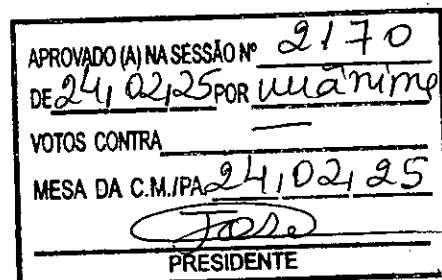 APROVADO (A) NA SESSÃO Nº 2170
DE 24, 02, 25 POR unânime
VOTOS CONTRA —
MESA DA C.M./PA 24, 02, 25
PRESIDENTE